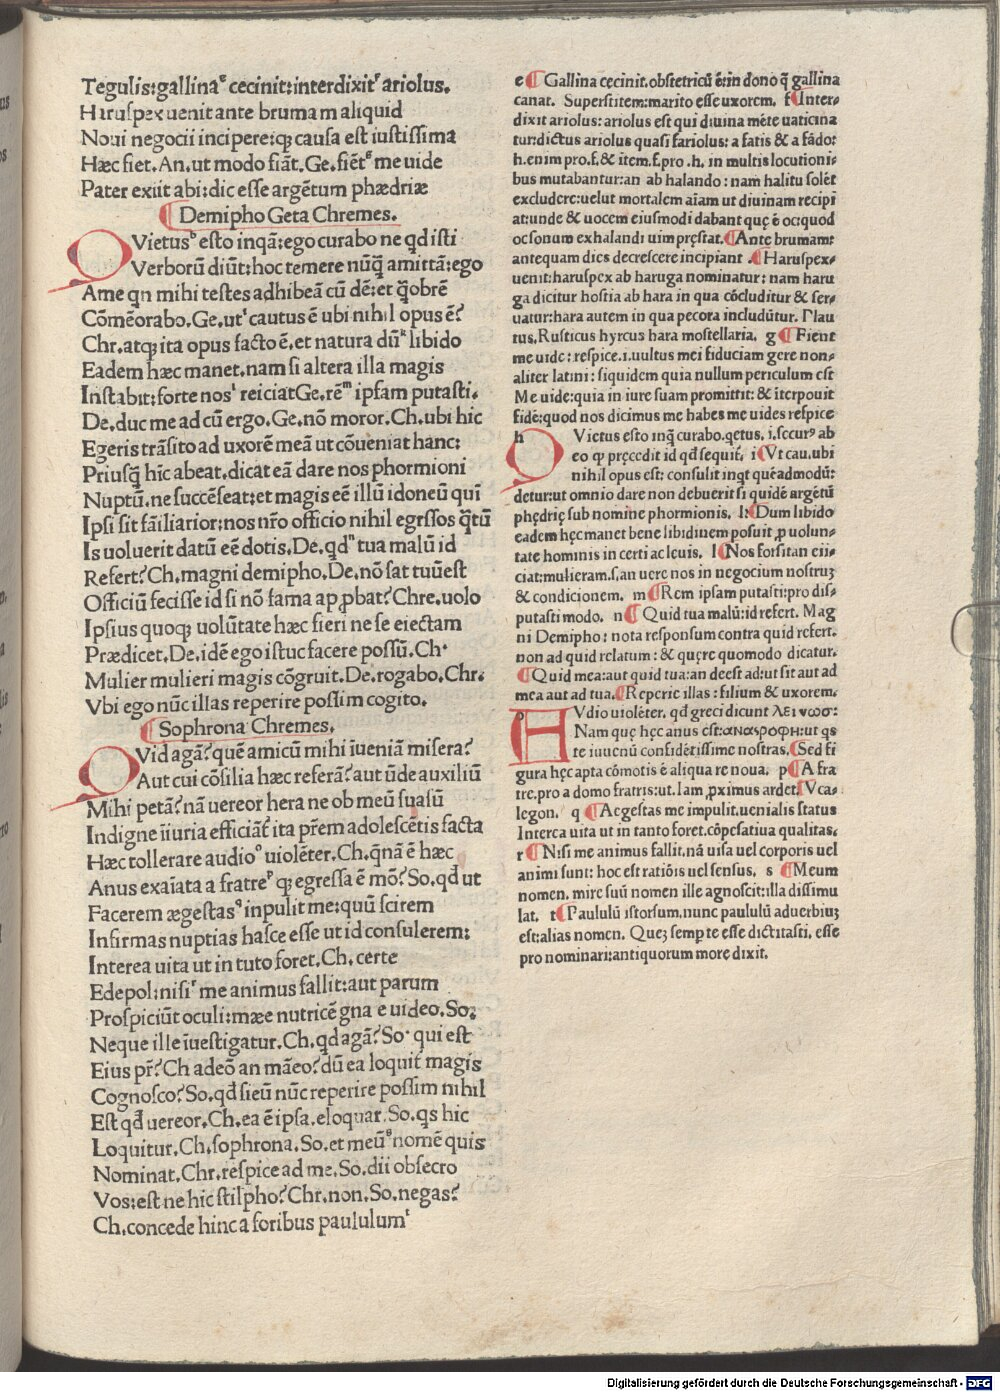 Tegulis:gallinaᵉ cecinit:interdixitᶠ ariolus.
Haruspex uenit ante brumam aliquid
Noui negocii incipere:q; causa est iustissima
Hæc fiet.An.ut modo fiãt.Ge.fiẽtᵍ me uide
Pater exiit abi:dic esse argẽtum phædriæ
¶ Demipho Geta Chremes.
QVietusʰ esto inqã:ego curabo ne qd isti
Verborũ diũt:hoc temere nũq̃ amittã:ego
Ame qn mihi testes adhibeã cũ dẽ:et q̃obrẽ
Cõmẽorabo.Ge.utⁱ cautus ẽ ubi nihil opus ẽ?
Chr.atq; ita opus facto ẽ.et natura dũᵏ libido
Eadem hæc manet.nam si altera illa magis
Instabit:forte nosˡ reiciat Ge.rẽᵐ ipsam putasti.
De.duc me ad eũ ergo.Ge.nõ moror.Ch.ubi hic
Egeris trãsito ad uxorẽ meã ut cõueniat hanc:
Priusq̃ hic abeat.dicat eã dare nos phormioni
Nuptũ.ne succẽseat:et magis eẽ illũ idoneũ qui
Ipsi sit fãiliarior:nos nr̃o officio nihil egressos q̃tũ
Is uoluerit datũ eẽ dotis.De.qdⁿ tua malũ id
Refert?Ch.magni demipho.De.nõ sat tuũ est
Officiũ fecisse id si nõ fama approbat?Chre.uolo
Ipsius quoq; uolũtate hæc fieri ne se eiectam
Prædicet.De.idẽ ego istuc facere possũ.Ch.
Mulier mulieri magis cõgruit.De.rogabo.Chr.
Vbi ego nũc illas reperire possim cogito.
¶ Sophrona Chremes.
QVid agã?quẽ amicũ mihi iueniã misera?
Aut cui cõsilia hæc referã?aut ũde auxiliũ
Mihi petã?nã uereor hera ne ob meũ suasũ
Indigne iiuria efficiat̃ ita pr̃em adolescẽtis facta
Hæc tollerare audioᵒ uiolẽter.Ch.q̃nã ẽ hæc
Anus exaiata a fratreᵖ q; egressa ẽ mõ?So.qd ut
Facerem ægestasᑫ inpulit me:quũ scirem
Infirmas nuptias hasce esse ut id consulerem:
Interea uita ut in tuto foret.Ch.certe
Edepol:nisiʳ me animus fallit:aut parum
Prospiciũt oculi:mææ nutricẽ gnæ uideo.So.
Neque ille iuestigatur.Ch.qd agã?So. qui est
Eius pr̃?Ch adeõ an mãeo?dũ ea loquit̃ magis
Cognosco?So.qd si eũ nũc reperire possim nihil
Est qd uereor.Ch.ea ẽ ipsa.eloquar.So.qs hic
Loquitur.Ch.sophrona.So.et meũˢ nomẽ quis
Nominat.Chr.respice ad me.So.dii obsecro
Vos:est ne hic stilpho?Chr.non.So.negas?
Ch.concede hinc a foribus paululumᵗ
e ¶ Gallina cecinit.obstetricũ ẽ:in dono q̃ gallina
canat. Superstitem:marito esse uxorem. f ¶Inter⸗
dixit ariolus: ariolus est qui diuina mẽte uaticina
tur:dictus ariolus quasi fariolus: a fatis & a fãdo:
h.enim pro.f.& item.f.pro .h. in multis locutioni⸗
bus mutabantur:an ab halando : nam halitu solẽt
excludere:uelut mortalem aiam ut diuinam recipi
at:unde & uocem eiusmodi dabant quę ẽ oc:quod
ocsonum exhalandi uim pręstat.¶Ante brumam:
antequam dies decrescere incipiant .¶ Haruspex⸗
uenit:haruspex ab haruga nominatur: nam haru
ga dicitur hostia ab hara in qua cõcluditur & ser⸗
uatur:hara autem in qua pecora includũtur. Plau
tus.Rusticus hyrcus hara mostellaria. g ¶ Fient
me uide : respice.i.uultus mei fiduciam gere non⸗
aliter latini : siquidem quia nullum periculum est
Me uide:quia in iure suam promittit: & iterpouit
fidẽ:quod nos dicimus me habes me uides respice
h QVietus esto inq̃ curabo.qetus. i.secur⁹ ab
eo qᵱ pręcedit id qd sequit̃. i ¶Vt cau.ubi
nihil opus est: consulit inqt quẽadmodũ:
detur:ut omnio dare non debuerit si quidẽ argẽtũ
phędrię sub nomine phormionis. k ¶Dum libido
eadem hęc manet bene libidinem posuit ꝓ uolun⸗
tate hominis in certi ac leuis. l ¶Nos forsitan eii⸗
ciat:mulieram.s.an uere nos in negocium nostruʒ
& condicionem. m ¶Rem ipsam putasti:pro dis⸗
putasti modo. n ¶ Quid tua malũ:id refert. Mag
ni Demipho: nota responsum contra quid refert.
non ad quid relatum : & quęre quomodo dicatur.
¶Quid mea:aut quid tua:an deest ad:ut sit aut ad
mea aut ad tua.¶Reperie illas : filium & uxorem.
o HVdio uiolẽter. qd greci dicunt λει νωσ:
Nam que hęc anus est:αναςροφη:ut qs
te iuuenũ confidẽtissime nostras.¶Sed fi
gura hęc apta cõmotis ẽ aliqua re noua. p ¶A fra
tre.pro a domo fratris:ut. Iam ꝓximus ardet.¶Vca⸗
legon. q ¶ Aegestas me impulit.uenialis status
Interea uita ut in tanto foret.cõpẽsatiua qualitas.
r ¶ Nisi me animus fallit.nã uisa uel corporis uel
animi sunt: hoc est ratiõis uel sensus. s ¶Meum
nomen. mire suũ nomen ille agnoscit:illa dissimu
lat. t¶Paululũ istorsum.nunc paululũ aduerbiuʒ
est:alias nomen. Queʒ semꝑ te esse dictitasti. esse
pro nominari:antiquorum more dixit.
Digitalisierung gefördert durch die Deutsche Forschungsgemeinschaft - DFG